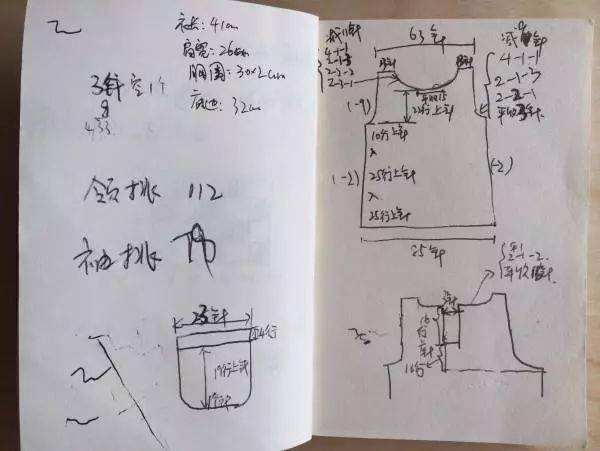 衣长: 41cm
肩宽: 26cm
胸围: 30×2cm
底边: 32cm
3针空1个
8
433
领排 112
袖排 78
25针
19行上针
减11针
4-1-1
2-1-3
2-2-2
2-3-1
63针
减9针
4-1-1
2-1-3
2-2-1
(-9)
22行上针
10行上针
25行上针
25行上针
(-2)
(-2)
85针
2-1-2
16行